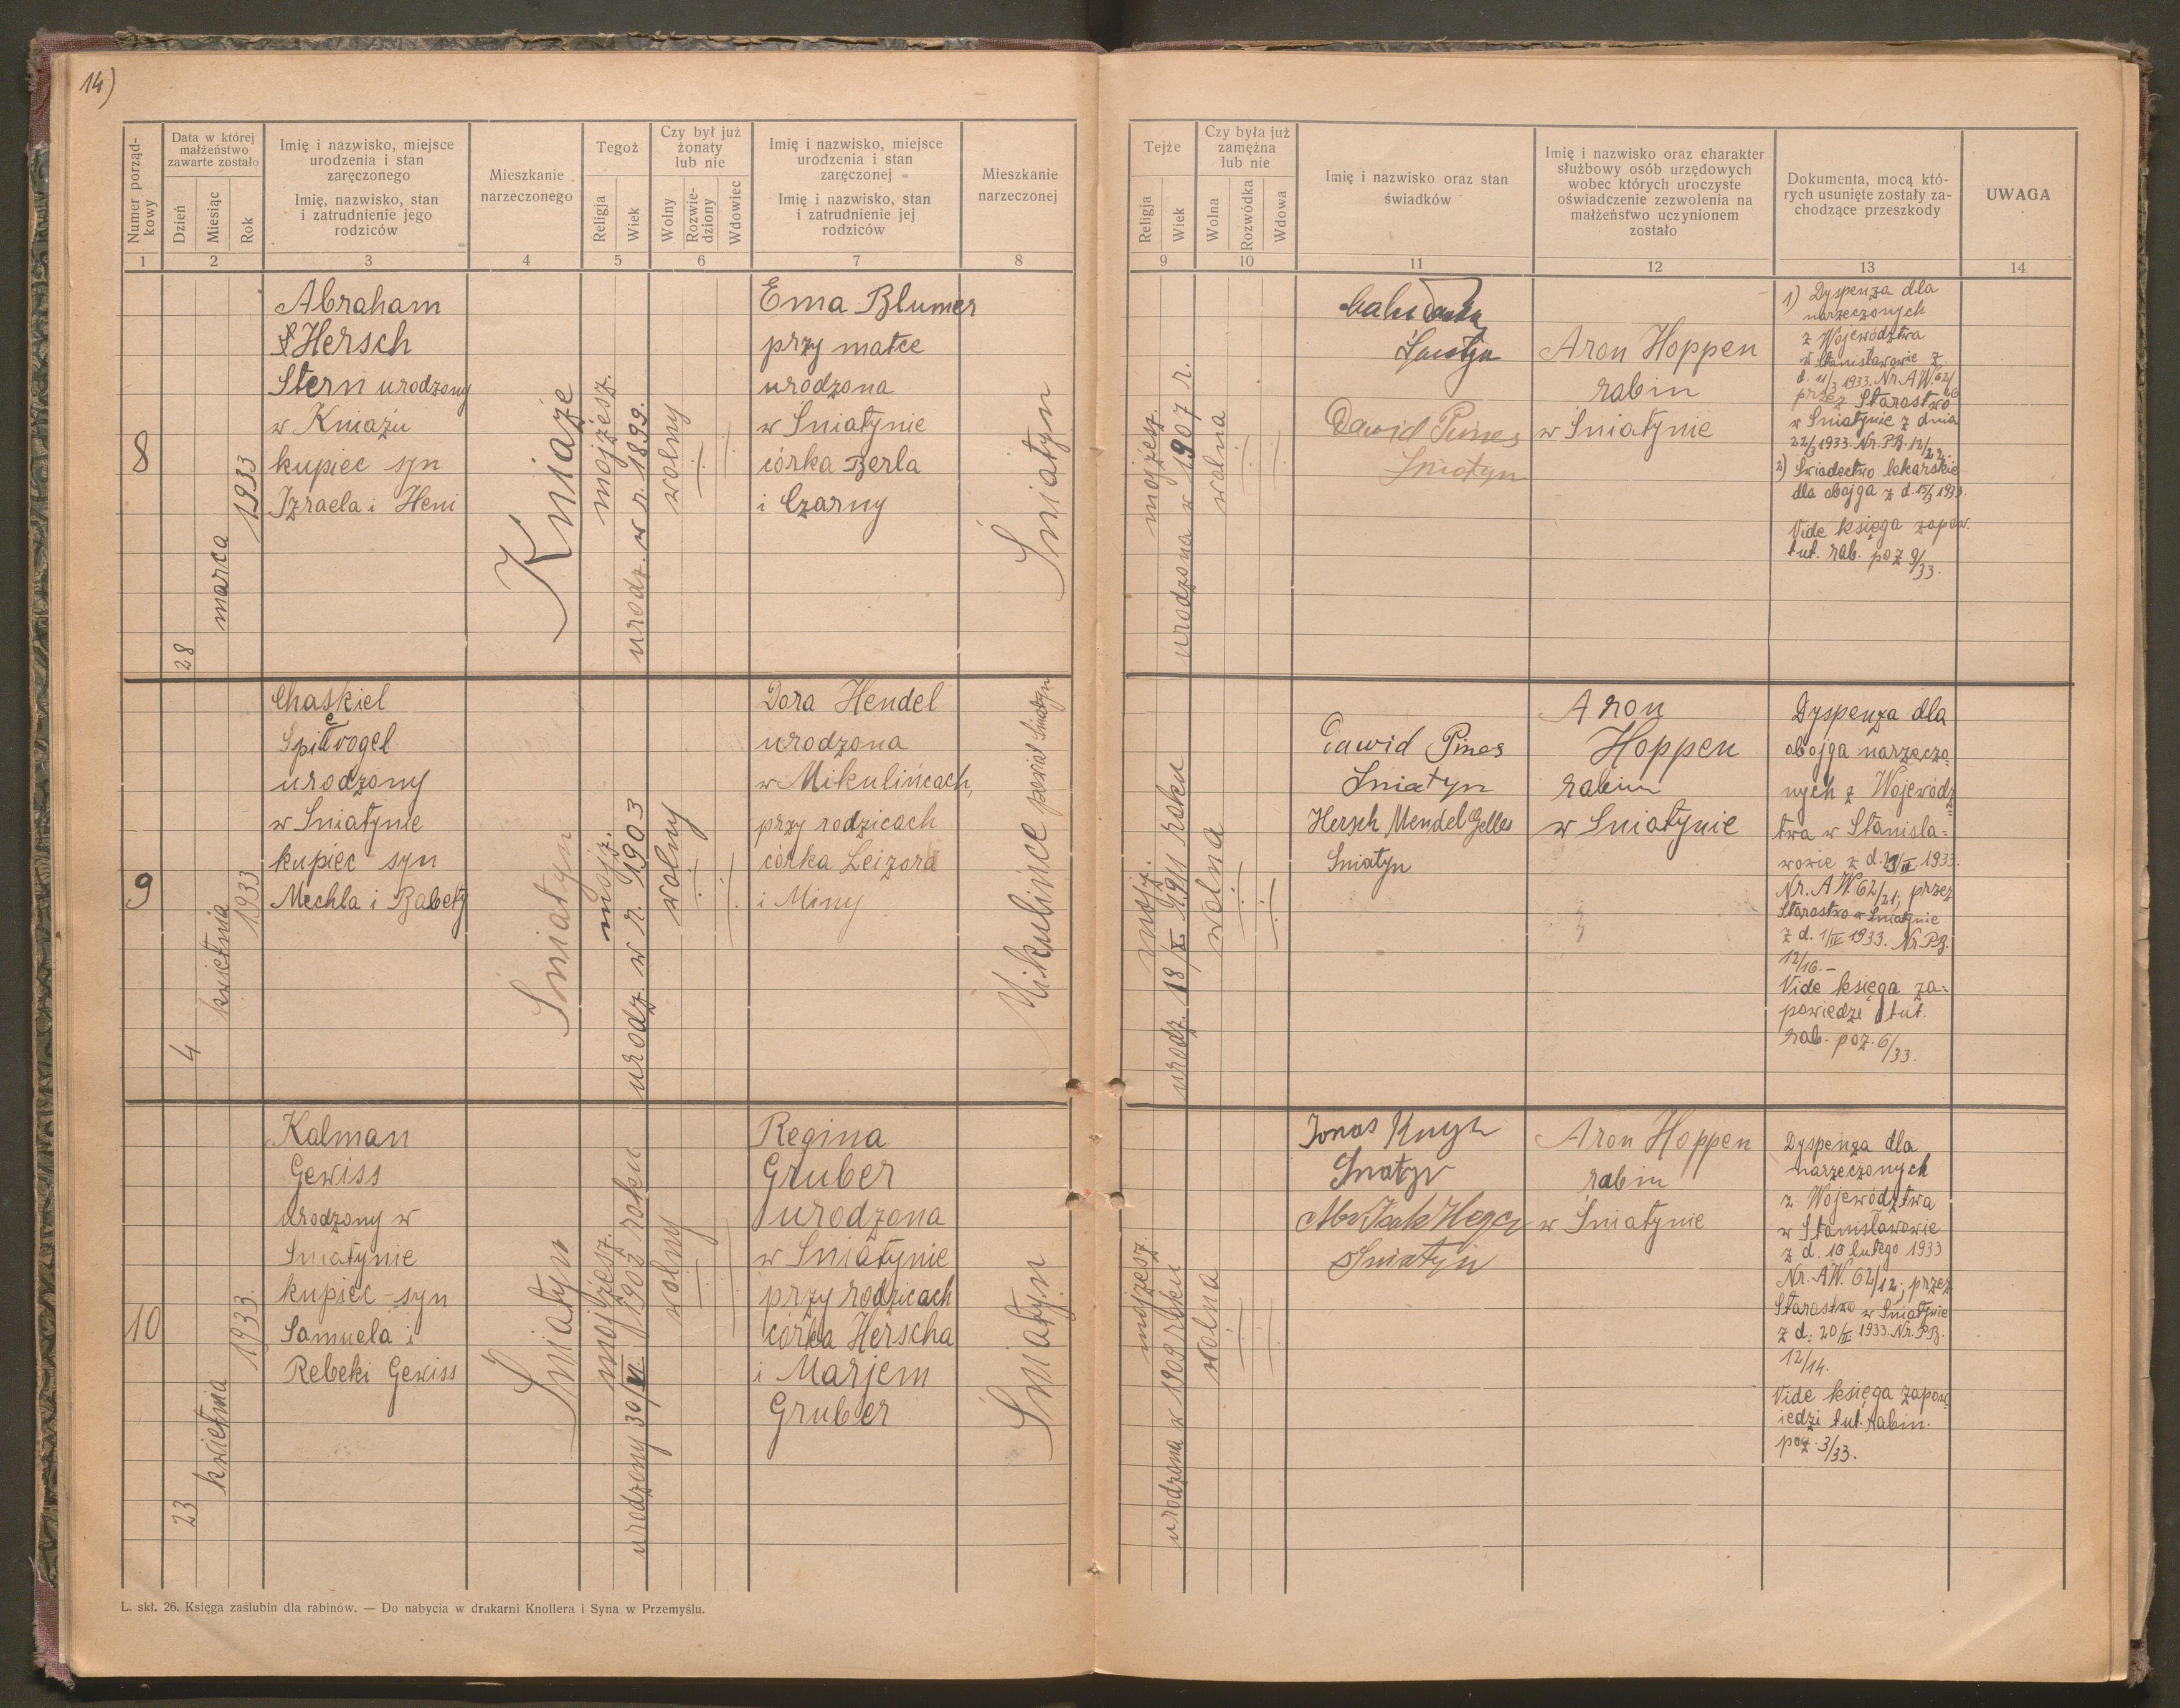 14)
Numer porząd-
kowy
Data w której
małżeństwo
zawarte zostało
Dzień
Miesiąc
Rok
Imię i nazwisko, miejsce
urodzenia i stan
zaręczonego
Imię, nazwisko, stan
i zatrudnienie jego
rodziców
Mieszkanie
narzeczonego
Tegoż
Religja
Wiek
Czy był już
żonaty
lub nie
Wolny
Rozwie-
dziony
Wdowiec
Imię i nazwisko, miejsce
urodzenia i stan
zaręczonej
Imię i nazwisko, stan
i zatrudnienie jej
rodziców
Mieszkanie
narzeczonej
1
2
3
4
5
6
7
8
Tejże
Religja
Wiek
Czy była już
zamężna
lub nie
Wolna
Rozwódka
Wdowa
Imię i nazwisko oraz stan
świadków
Imię i nazwisko oraz charakter
służbowy osób urzędowych
wobec których uroczyste
oświadczenie zezwolenia na
małżeństwo uczynionem
zostało
Dokumenta, mocą któ-
rych usunięte zostały za-
chodzące przeszkody
UWAGA
9
10
11
12
13
14
8
28
marca
1933
Abraham
Hersch
Stern urodzony
w Kniażu
kupiec syn
Izraela i Heni
Kniaże
mojżesz.
urodz. w r. 1899.
wolny
Ema Blumer
przy matce
urodzona
w Śniatynie
córka Berla
i Czarny
Śniatyn
mojżesz.
urodzona w 1907 r.
wolna
Śniatyn
Dawid Pines
Śniatyn
Aron Hoppen
rabin
w Śniatynie
1) Dyspenza dla
narzeczonych
z Województwa
w Stanisławowie z
d. 11/3 1933. Nr. AW. 62/
26
przez Starostwo
w Śniatynie z dnia
22/3 1933. Nr. PB. 12/22.
2) Świadectwo lekarskie
dla obojga z d. 15/3 1933.
Vide księga zapow.
tut. rab. poz 9/33.
9
4
kwietnia
1933
Chaskiel
Spilvogel
urodzony
w Śniatynie
kupiec syn
Mechla i Babety
Śniatyn
mojż.
urodz. w r. 1903
wolny
Dora Hendel
urodzona
w Mikulińcach,
przy rodzicach
córka Leizora
i Miny
Mikulińce powiat Śniatyn
mojż.
urodz. 18/X 1911 roku
wolna
Dawid Pines
Śniatyn
Hersch Mendel Gelles
Śniatyn
Aron
Hoppen
rabin
w Śniatynie
Dyspenza dla
obojga narzeczo-
nych z Wojewódz-
twa w Stanisła-
wowie z d. 1933.
Nr. AW. 62/21; przez
Starostwo w Śniatynie
z d. 1/IV 1933. Nr. PB.
12/16.-
Vide księga za-
powiedzi tut.
rab. poz. 6/33.
10
23
kwietnia
1933.
Kalman
Gewiss
urodzony w
Śniatynie
kupiec - syn
Samuela i
Rebeki Gewiss
Śniatyn
mojżesz.
urodzony 30/VI 1902 roku
wolny
Regina
Gruber
urodzona
w Śniatynie
przy rodzicach
córka Herscha
i Marjem
Gruber
Śniatyn
mojżesz.
urodzona w 1909 roku
wolna
Jonas
Śniatyn
Śniatyn
Aron Hoppen
rabin
w Śniatynie
Dyspenza dla
narzeczonych
z Województwa
w Stanisławowie
z d. 16 lutego 1933
Nr. AW. 62/12; przez
Starostwo w Śniatynie
z d. 20/II 1933. Nr. PB.
12/14.
Vide księga zapow-
iedzi tut. rabin.
poz. 3/33.
L. skł. 26. Księga zaślubin dla rabinów. — Do nabycia w drukarni Knollera i Syna w Przemyślu.